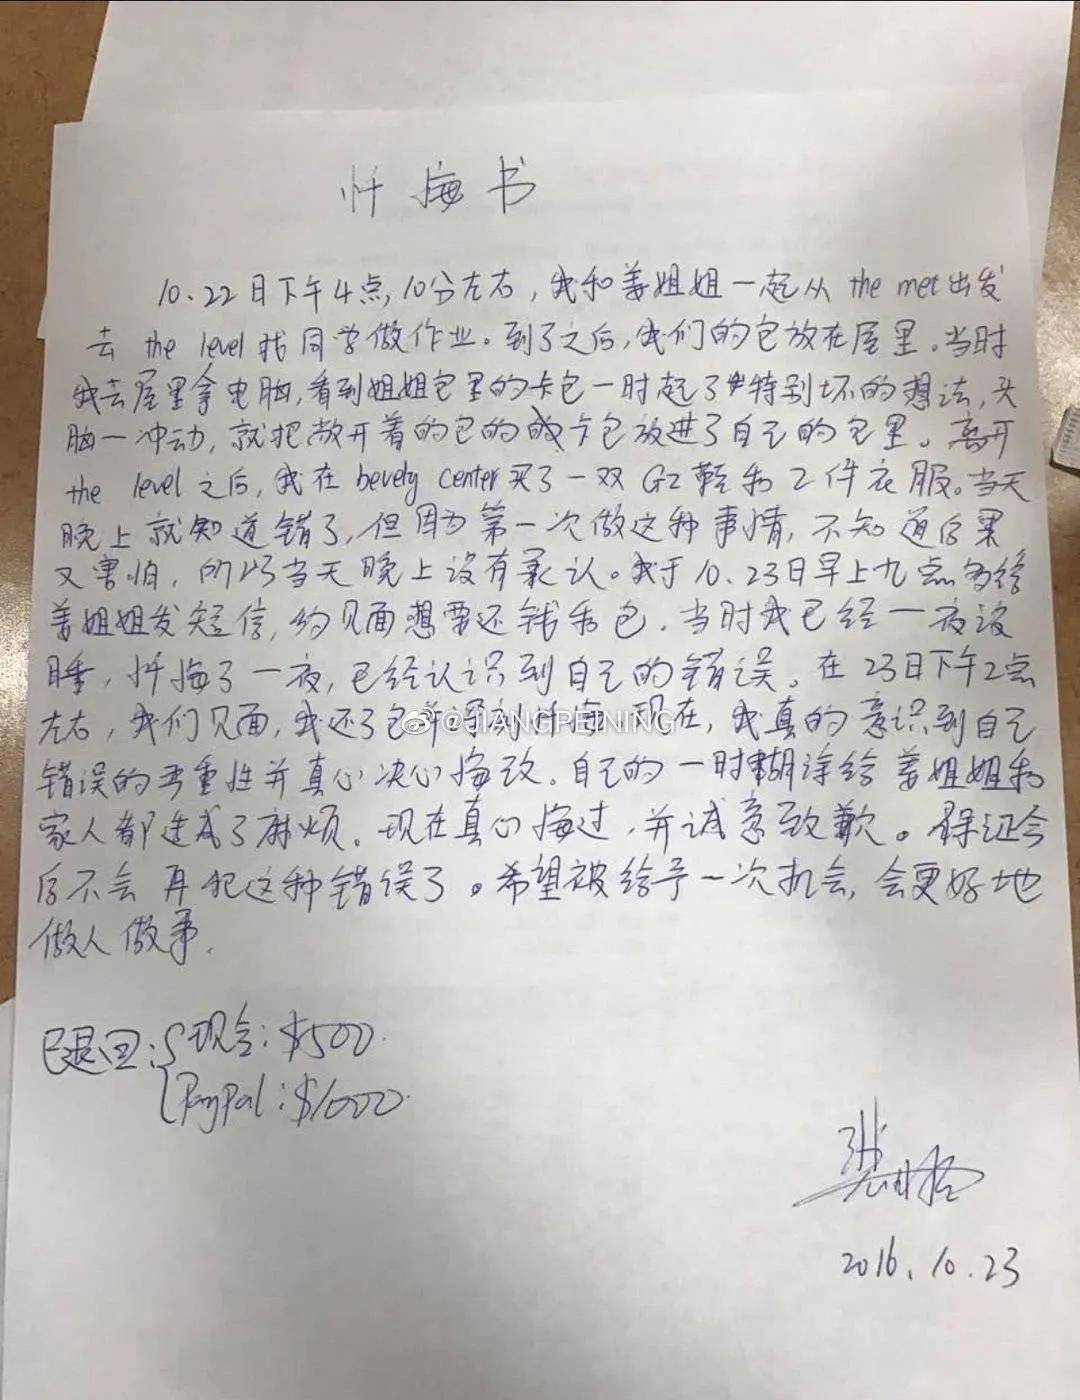 忏悔书
10.22日下午4点,10分左右,我和姜姐姐一起从 the met出发
去 the level找同学做作业。到了之后,我们的包放在屋里。当时
我去屋里拿电脑,看到姐姐包里的卡包一时起了特别坏的想法,头
脑一冲动,就把敞开着的包的卡包放进了自己的包里。离开
the level之后,我在 bevely center买了一双GZ鞋和2件衣服。当天
晚上就知道错了,但因为第一次做这种事情,不知道后果
又害怕,所以当天晚上没有承认。我于10.23日早上九点多给
姜姐姐发短信,约见面想要还钱和包。当时我已经一夜没
睡,忏悔了一夜,已经认识到自己的错误。在23日下午2点
左右,我们见面,我还了包并深刻忏悔。现在,我真的意识到自己
错误的严重性并真心决心悔改。自己的一时糊涂给姜姐姐和
家人都造成了麻烦。现在真心悔过,并诚意致歉。保证今
后不会再犯这种错误了。希望被给予一次机会,会更好地
做人做事.
已退回:现金:$500.
PayPal:$1000.
2016.10.23
@JIANGPEINING